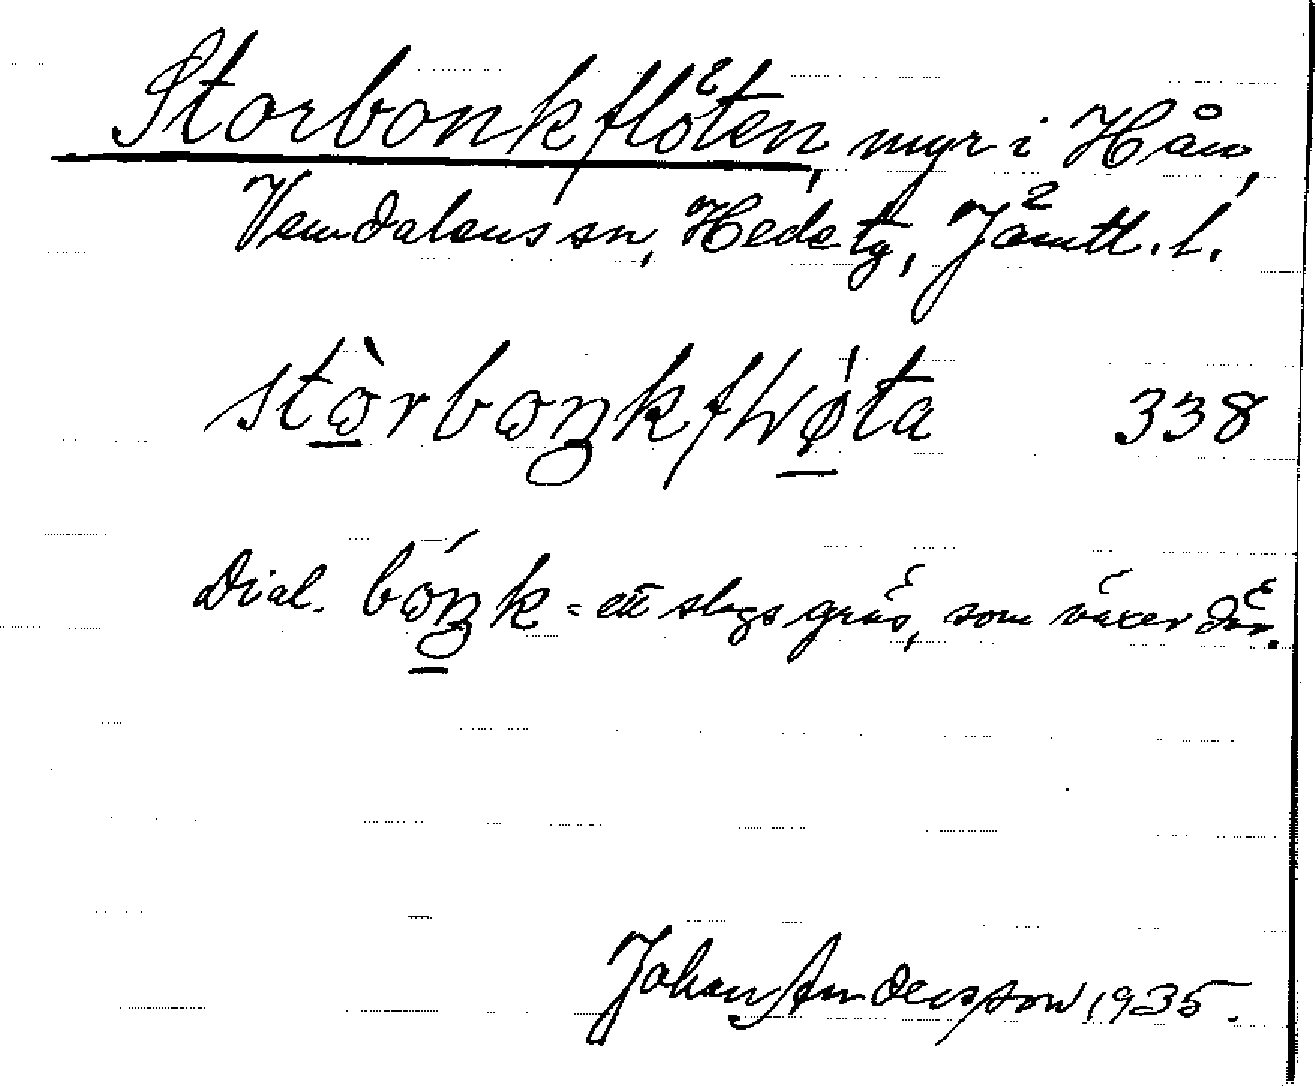 Storbonkflöten, myr i Hån,
Vemdalens sn, Hede tg, Jämtl. l.
stòrboŋkfɫǿta 338
Dial. bóŋk = ett slags gräs, som växer där.
Johan Andersson 1935.